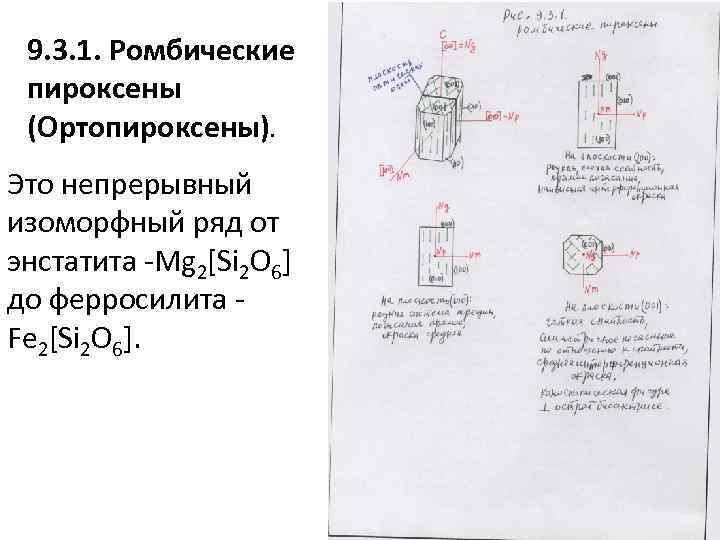 9. 3. 1. Ромбические
пироксены
(Ортопироксены).
Это непрерывный
изоморфный ряд от
энстатита -Mg2[Si2O6]
до ферросилита -
Fe2[Si2O6].
Рис. 9.3.1.
ромбические пироксены
C
[001]=Ng
плоскость
оптических
осей
(010)
(100)
[010]=Np
[100]
Nm
Ng
(010)
Np
На плоскости (100):
редкая, схожая спайность,
прямое погасание,
наивысшая интерференционная
окраска
Ng
(010)
Nm
(100)
На плоскости (010):
редкая система трещин,
погасание прямое,
окраска средняя
(001)
Np
Ng
Nm
На плоскости (001):
четкая спайность,
симметричное погасание
по отношению к спайности,
средняя интерференционная
окраска.
коноскопическая фигура
⊥ острой биссектрисе.